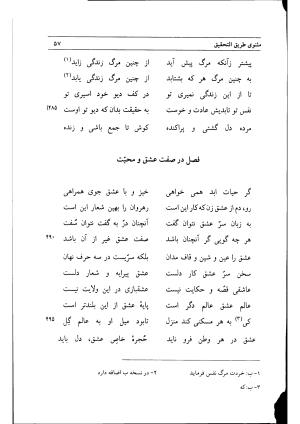 مثنوی طریق التحقیق ۵۷
پیشتر زآنکه مرگ پیش آید از چنین مرگ زندگی زاید (۱)
به چنین مرگ هر که بشتابد از چنین مرگ زندگی یابد (۲)
تا از این زندگی نمیری تو در کف دیو خود اسیری تو
نفس تو تابدیش عادت و خوست به حقیقت بدان که دیو تو اوست (۴۸۵
مرده دل گشتی و پراکنده کوش تا جمع باشی و زنده
فصل در صفت عشق و محبّت
گر حیات ابد همی خواهی خیز و با عشق جوی همراهی
رو، دم از عشق زن که کار این است رهروان را بهین شعار این است
به زبان سرّ عشق نتوان گفت آنچنان دُر به گفت نتوان سُفت
هر چه گویی گر آنچنان باشد صفت عشق غیر از آن باشد ۴۹۰
عشق را عین و شین و قاف مدان بلکه سرّیست در سه حرف نهان
سخن سرّ عشق کار دلست عشق پیرایه و شعار دلست
عاشقی قصّه و حکایت نیست عشقبازی در این ولایت نیست
عشق عالم دگر است پایهٔ عشق از این بلندتر است
کی (۳) به هر مسکنی کند منزل تابود میل او به عالم گِل ۴۹۵
عشق در هر وطن فرو ناید حُجرهٔ خاصِ عشق، دل باید
۱- ب: خردت مرگ نفس فرماید ۲- در نسخه ب اضافه دارد
۳- ب: که